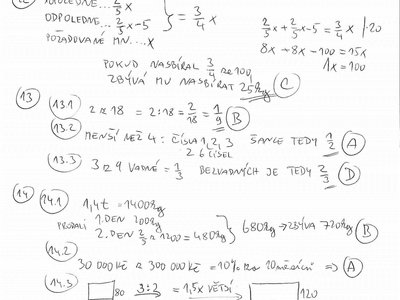 12
DOPOLEDNE... 2/5 x
ODPOLEDNE... 2/5 x-5 } = 3/4 x
POŽADOVANÉ MN.... x
2/5 x + 2/5 x - 5 = 3/4 x /·20
8x + 8x - 100 = 15x
1x = 100
POKUD NASBÍRAL 3/4 ze 100,
ZBÝVÁ MU NASBÍRAT 25kg C
13
13.1 2 z 18 = 2:18 = 2/18 = 1/9 B
13.2 MENŠÍ NEŽ 4: ČÍSLA 1,2,3 ŠANCE TEDY 1/2 A
Z 6 ČÍSEL
13.3 3 z 9 VADNÉ = 1/3 BEZVADNÝCH JE TEDY 2/3 D
14
14.1 1,4t = 1400kg
PRODALI 1.DEN 200kg
2.DEN 2/5 z 1200 = 480kg } 680kg → ZBÝVÁ 720kg B
14.2
30 000 KČ z 300 000 KČ = 10% ZA 20 měsíců => A
14.3 80 3:2 = 1,5x VĚTŠÍ 120